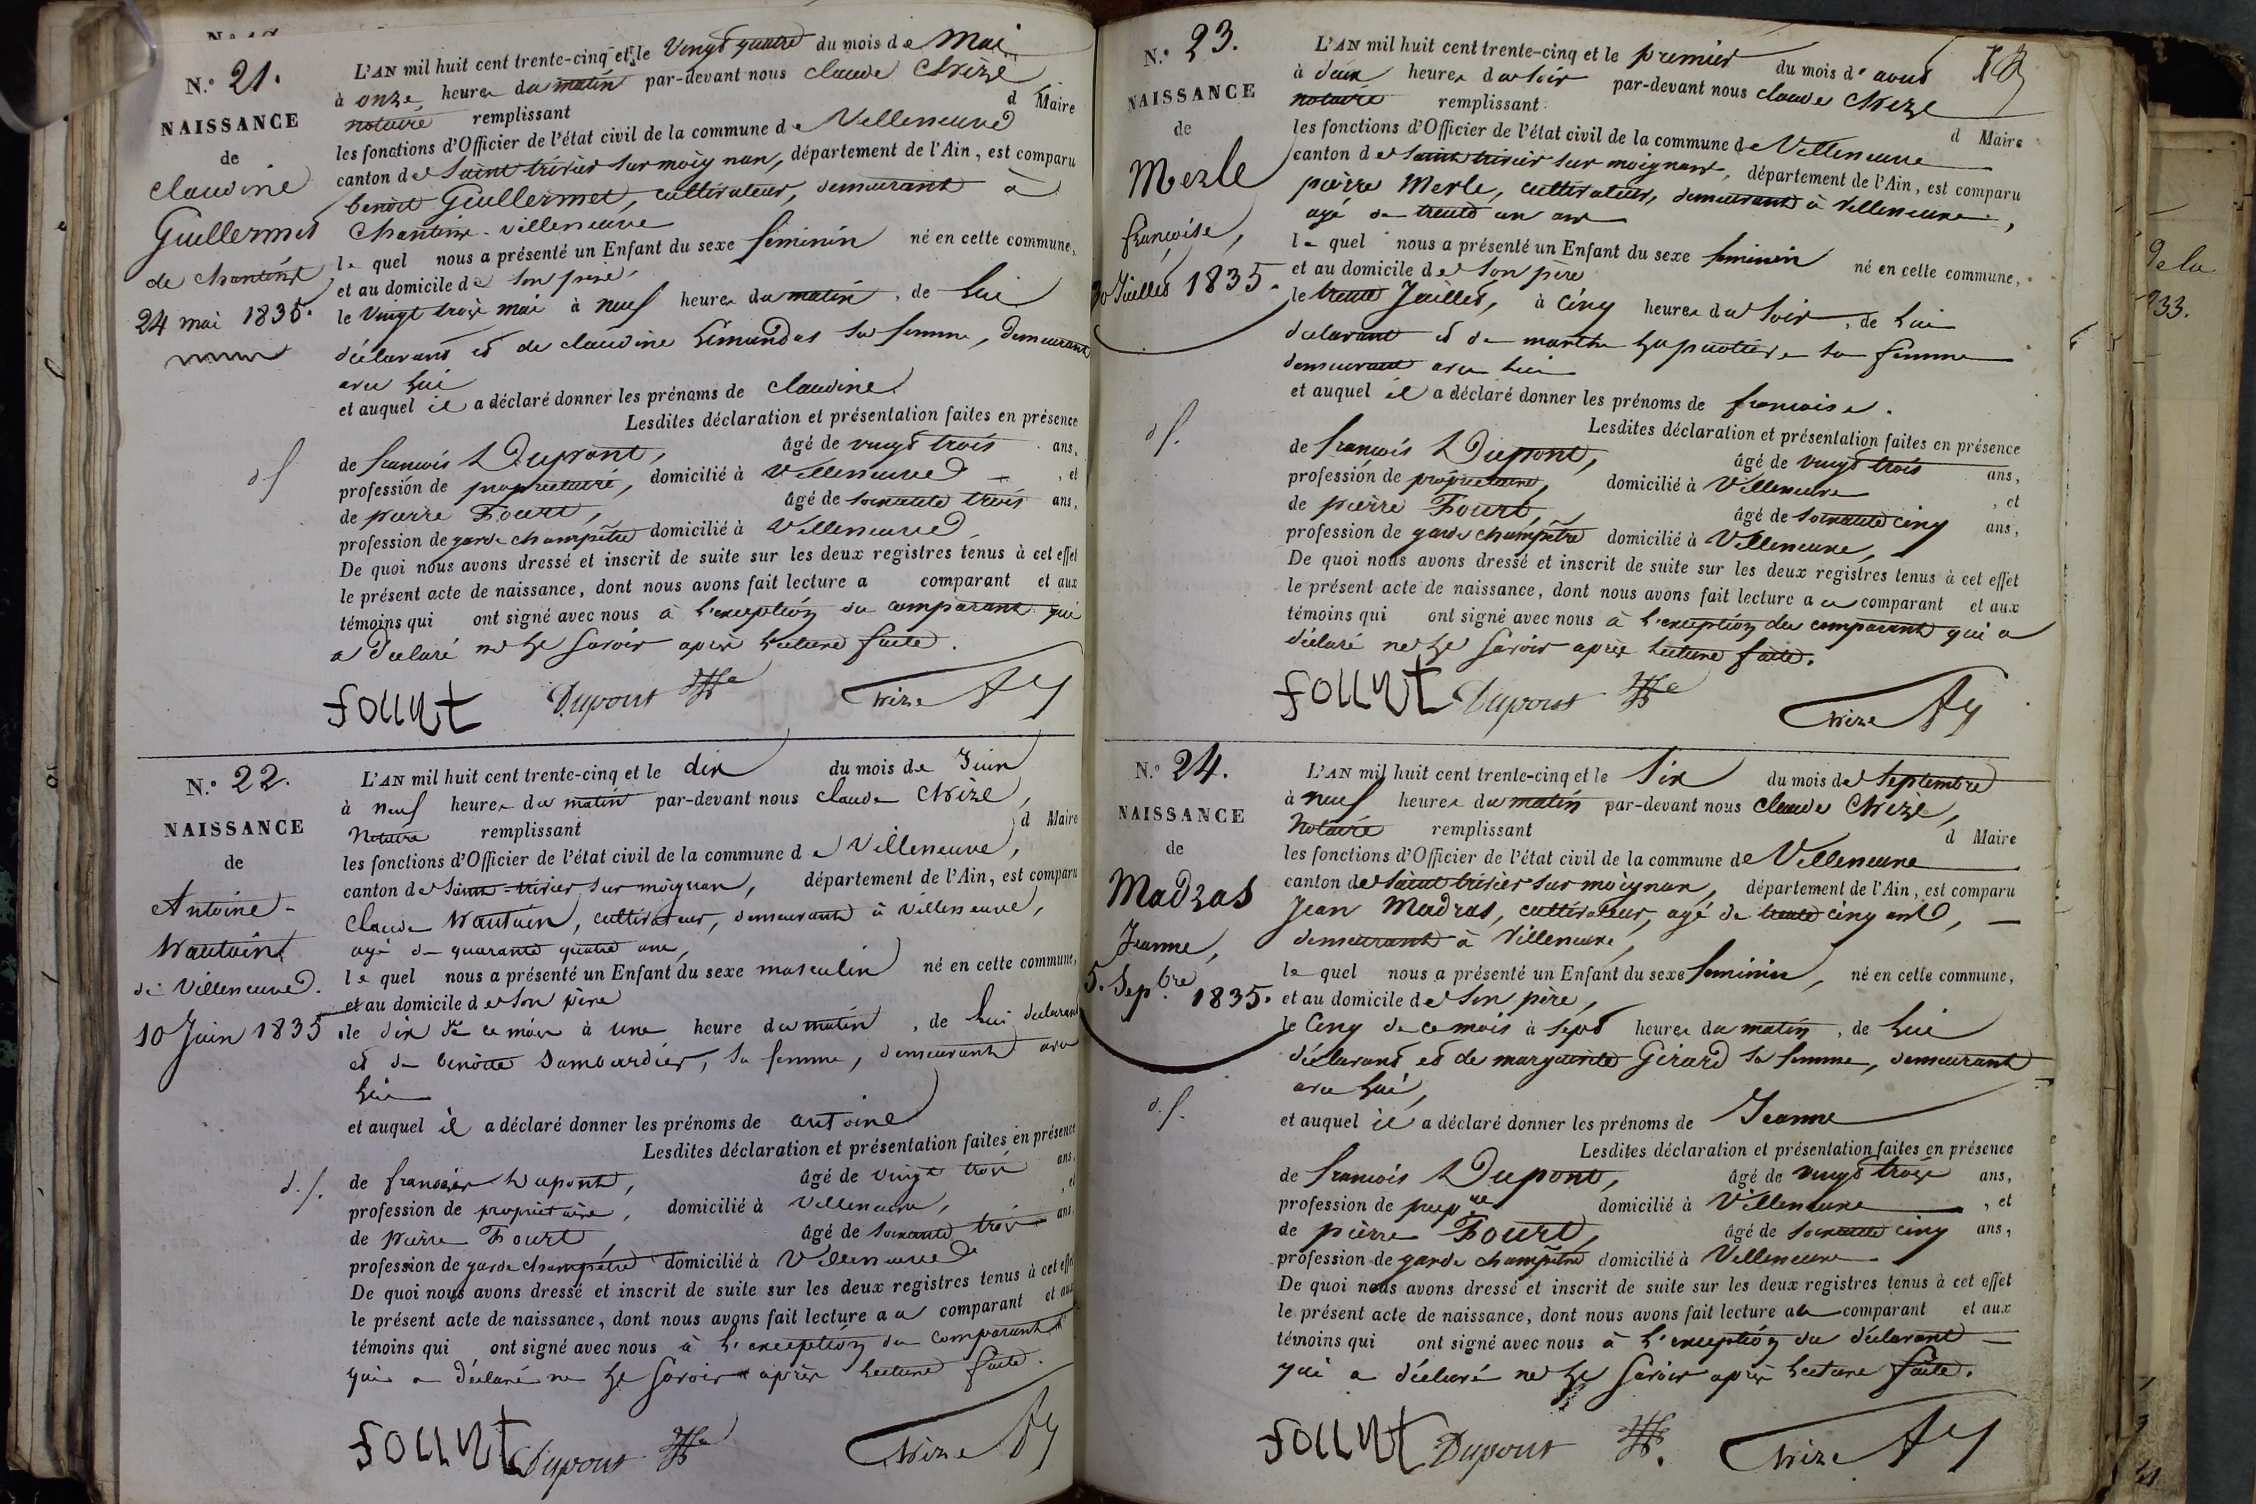 N.° 21.
NAISSANCE
de
claudine
Guillermet
de chanteins
24 mai 1835.
L'AN mil huit cent trente-cinq et le Vingt quatre du mois de Mai
à onze heures du matin par-devant nous claude Chize
notaire remplissant d Maire
les fonctions d'Officier de l'état civil de la commune de Villeneuve
canton de Saint trivier sur moignan, département de l'Ain, est comparu
benoit Guillermet, cultivateur, demeurant à
Chanteins-villeneuve
le quel nous a présenté un Enfant du sexe féminin né en cette commune,
et au domicile de son père
le vingt trois mai à neuf heures du matin, de Lui
déclarant et de claudine sa femme, demeurant
avec Lui
et auquel il a déclaré donner les prénoms de claudine
Lesdites déclaration et présentation faites en présence
de françois Dupont, âgé de vingt trois ans,
profession de propriétaire, domicilié à Villeneuve, et
de pierre Fourt, âgé de soixante trois ans,
profession de garde champêtre domicilié à Villeneuve
De quoi nous avons dressé et inscrit de suite sur les deux registres tenus à cet effet
le présent acte de naissance, dont nous avons fait lecture a comparant et aux
témoins qui ont signé avec nous à l'exception du comparant qui
a déclaré ne le savoir après lecture faite.
fourt Dupont Chize
N.° 22.
NAISSANCE
de
Antoine
Wautain
de Villeneuve.
10 Juin 1835
L'AN mil huit cent trente-cinq et le dix du mois de Juin
à neuf heures du matin par-devant nous claude Chize,
Notaire remplissant d Maire
les fonctions d'Officier de l'état civil de la commune de Villeneuve,
canton de Saint-trivier sur moignan, département de l'Ain, est comparu
Claude Wautain, cultivateur, demeurant à villeneuve,
agé de quarante quatre ans,
le quel nous a présenté un Enfant du sexe masculin né en cette commune,
et au domicile de son père
le dix de ce mois à une heure du matin, de Lui déclarant
et de benoite Dombardier, sa femme, demeurant avec
Lui
et auquel il a déclaré donner les prénoms de antoine
Lesdites déclaration et présentation faites en présence
de françois Dupont, âgé de vingt trois ans,
profession de propriétaire, domicilié à Villeneuve, et
de pierre Fourt âgé de soixante trois ans,
profession de garde champêtre domicilié à Villeneuve
De quoi nous avons dressé et inscrit de suite sur les deux registres tenus à cet effet
le présent acte de naissance, dont nous avons fait lecture a u comparant et aux
témoins qui ont signé avec nous à l'exception du comparant
qui a déclaré ne le savoir après lecture faite.
fourt Dupont Chize
N.° 23.
NAISSANCE
de
Merle
françoise,
30 Juillet 1835.
L'AN mil huit cent trente-cinq et le premier du mois d'aout
à deux heures du soir par-devant nous claude Chize
notaire remplissant d Maire
les fonctions d'Officier de l'état civil de la commune de Villeneuve
canton de saint trivier sur moignan, département de l'Ain, est comparu
pierre Merle, cultivateur, demeurant à villeneuve,
agé de trente un ans
le quel nous a présenté un Enfant du sexe feminin né en cette commune,
et au domicile de son père
le trente Juillet, à cinq heures du soir, de Lui
déclarant et de marthe sa femme
demeurant avec lui
et auquel il a déclaré donner les prénoms de francoise.
Lesdites déclaration et présentation faites en présence
de françois Dupont, âgé de vingt trois ans,
profession de propriétaire, domicilié à Villeneuve, et
de pierre Fourt, âgé de soixante cinq ans,
profession de garde champêtre domicilié à Villeneuve,
De quoi nous avons dressé et inscrit de suite sur les deux registres tenus à cet effet
le présent acte de naissance, dont nous avons fait lecture a u comparant et aux
témoins qui ont signé avec nous à l'exception du comparant qui a
déclaré ne le savoir après lecture faite.
fourt Dupont Chize
N.° 24.
NAISSANCE
de
Madras
Jeanne,
5. Sep.bre 1835.
L'AN mil huit cent trente-cinq et le Six du mois de Septembre
à neuf heures du matin par-devant nous claude Chize,
Notaire remplissant d Maire
les fonctions d'Officier de l'état civil de la commune de Villeneuve
canton de saint trivier sur moignan, département de l'Ain, est comparu
Jean Madras, cultivateur, agé de trente cinq ans,
demeurant à Villeneuve,
le quel nous a présenté un Enfant du sexe feminin, né en cette commune,
et au domicile de son père,
le cinq de ce mois à sept heures du matin, de Lui
déclarant et de marguerite Girard sa femme, demeurant
avec Lui,
et auquel il a déclaré donner les prénoms de Jeanne
Lesdites déclaration et présentation faites en présence
de françois Dupont, âgé de vingt trois ans,
profession de prop.re domicilié à Villeneuve, et
de pierre Fourt, âgé de soixante cinq ans,
profession de garde champêtre domicilié à Villeneuve
De quoi nous avons dressé et inscrit de suite sur les deux registres tenus à cet effet
le présent acte de naissance, dont nous avons fait lecture au comparant et aux
témoins qui ont signé avec nous à l'exception du déclarant
qui a déclaré ne le savoir après lecture faite.
fourt Dupont Chize
de la